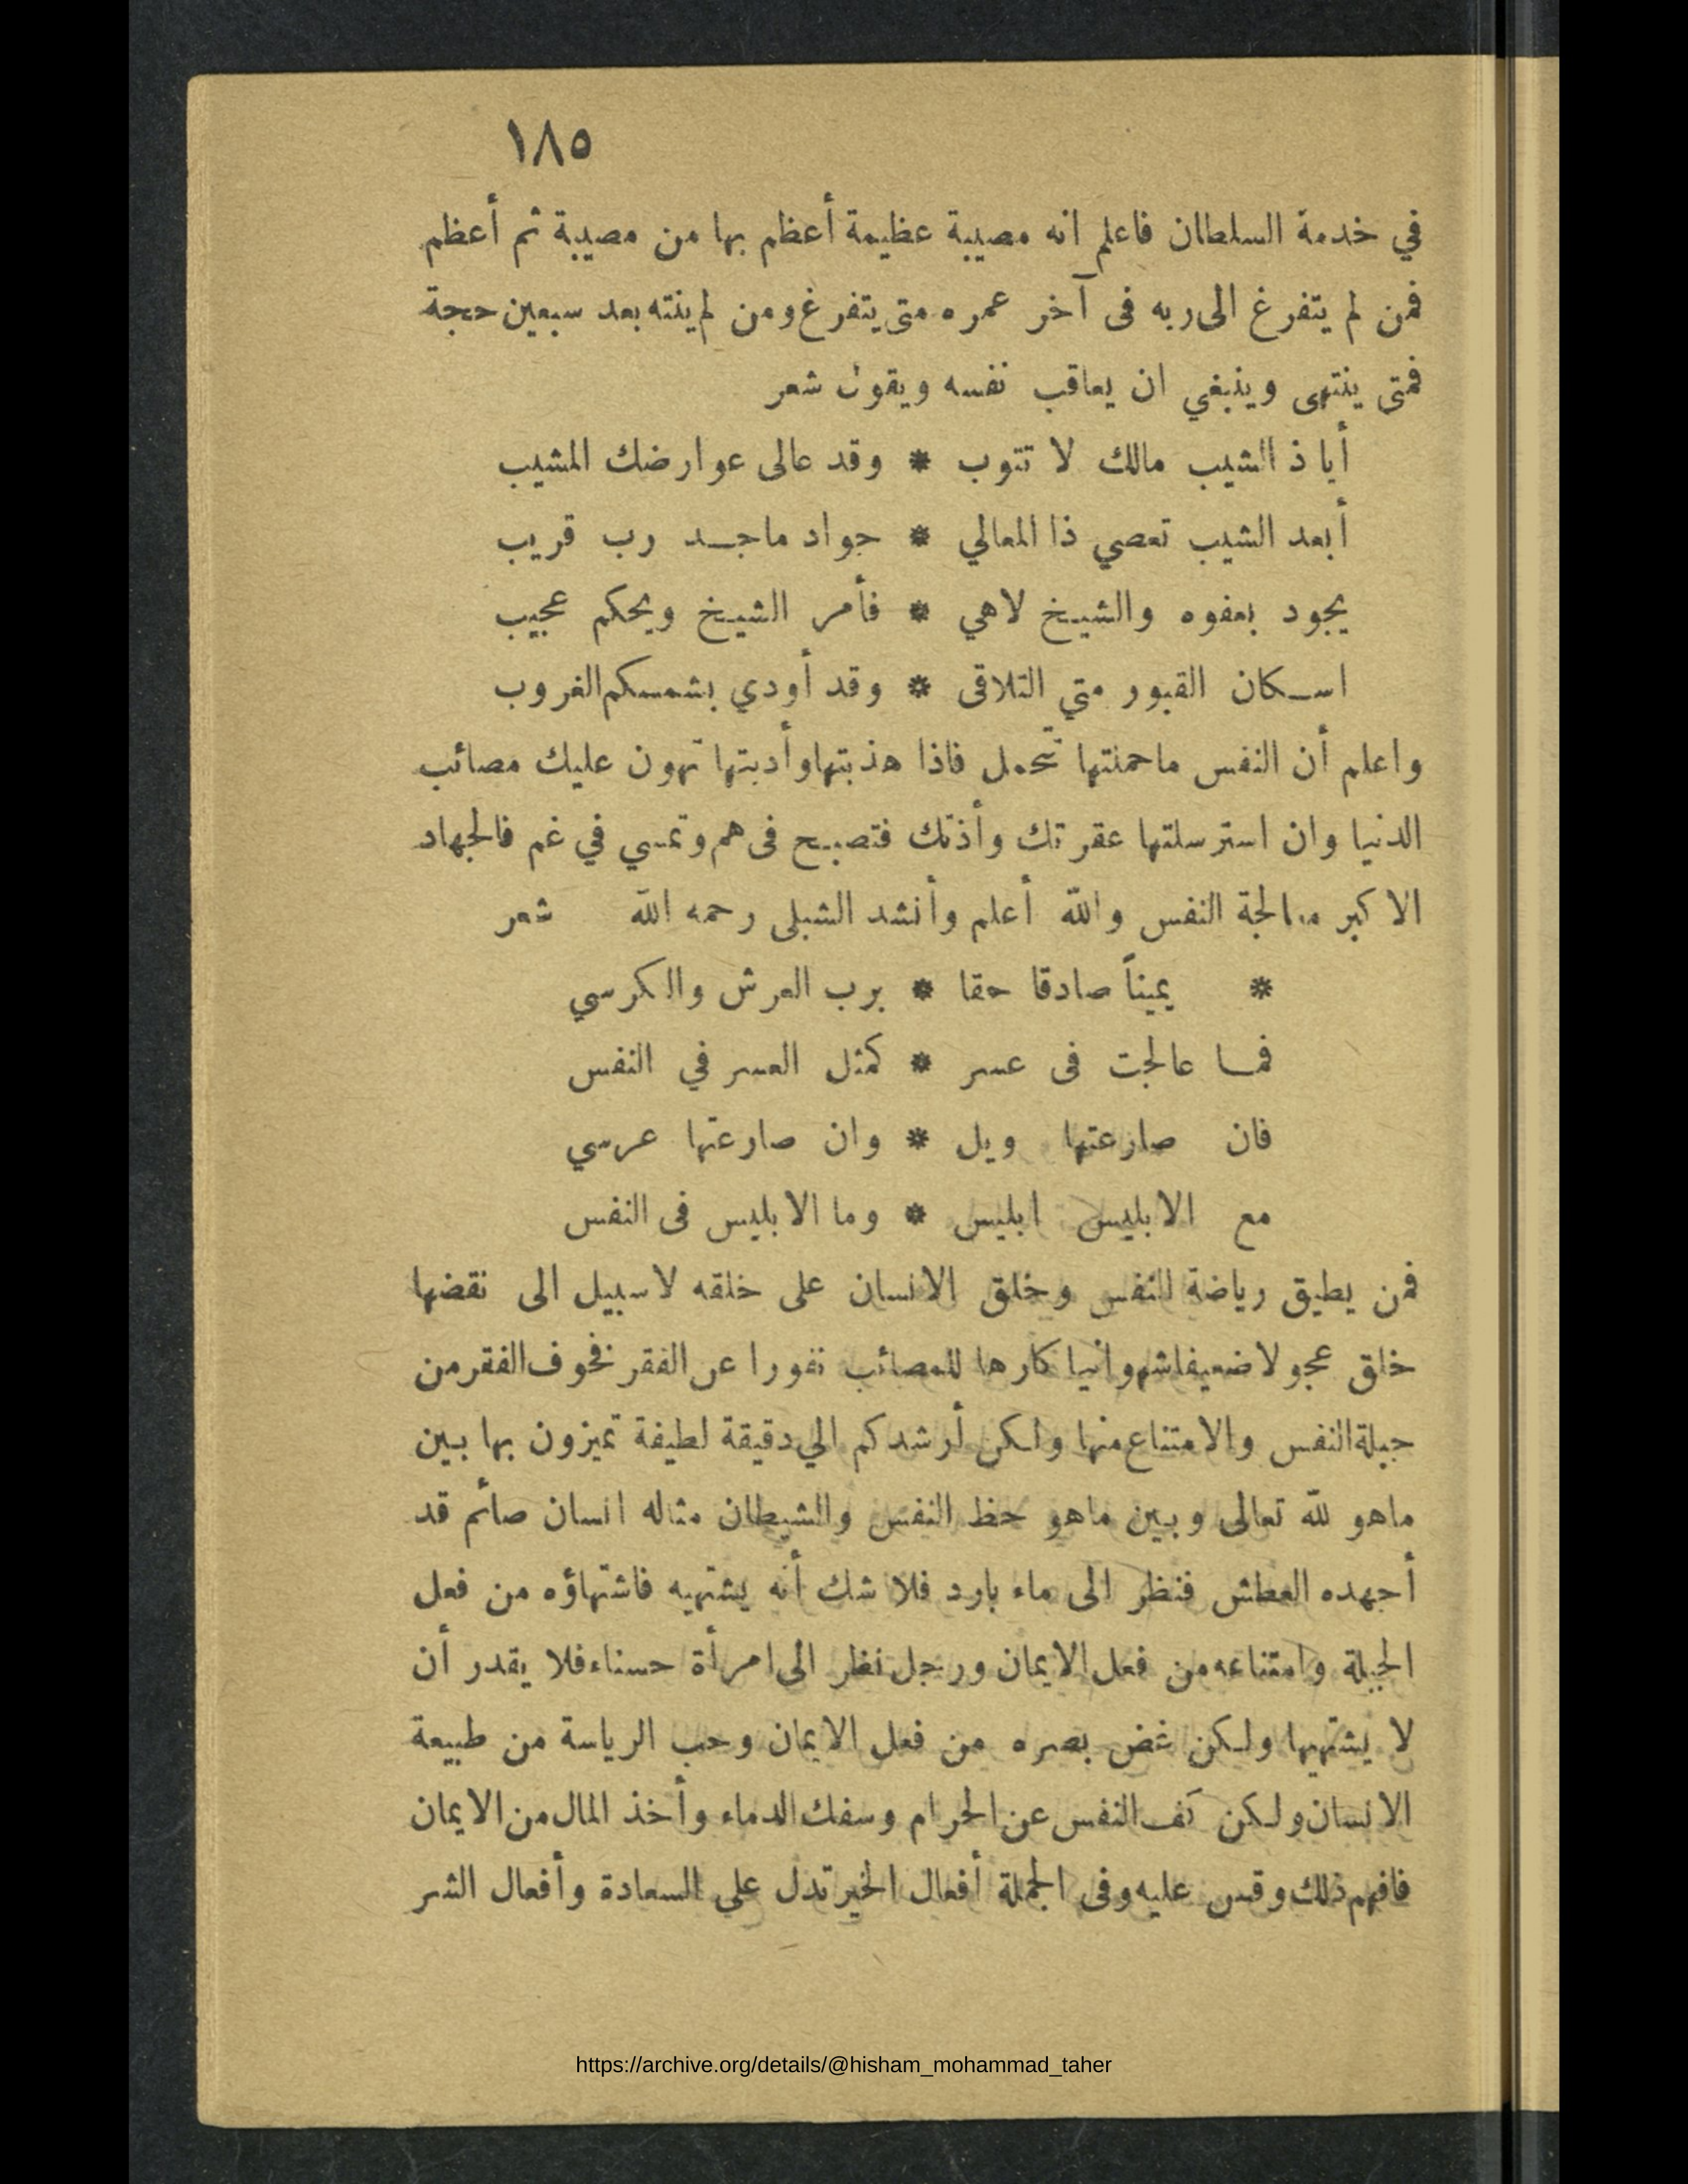 ١٨٥
في خدمة السلطان فاعلم انه مصيبة عظيمة أعظم بها من مصيبة ثم أعظم
فمن لم يتفرغ الى ربه فى آخر عمره متى يتفرغ ومن لم ينته بعد سبعين حجة
فمتى ينتهى وينبغي ان يعاقب نفسه ويقول شعر
أيا ذ الشيب مالك لا تتوب * وقد عالى عوارضك المشيب
أبعد الشيب تعصي ذا المعالي * جواد ماجد رب قريب
يجود بعفوه والشيخ لاهي * فأمر الشيخ ويحكم عجيب
اسكان القبور متي التلاقى * وقد أودي بشمسكم الغروب
واعلم أن النفس ماحملتها تتحمل فاذا هذبتها وأدبتها تهون عليك مصائب
الدنيا وان استرسلتها عقرتك وأذتك فتصبح فى هم وتمسي في غم فالجهاد
الاكبر معالجة النفس والله أعلم وأنشد الشبلى رحمه الله شعر
* يميناً صادقا حقا * برب العرش والكرسي
فما عالجت فى عسر * كمثل العسر في النفس
فان صارعتها ويل * وان صارعتها عرسي
مع الابليس ابليس * وما الابليس فى النفس
فمن يطيق رياضة للنفس وخلق الانسان على خلقه لا سبيل الى نقضها
خلق عجولا ضعيفا شهوانيا كارها للمصائب نفورا عن الفقر فخوف الفقر من
جبلة النفس والامتناع منها ولكن أرشدكم الي دقيقة لطيفة تميزون بها بين
ماهو لله تعالى وبين ماهو حظ النفس والشيطان مثاله انسان صائم قد
أجهده العطش فنظر الى ماء بارد فلا شك أنه يشتهيه فاشتهاؤه من فعل
الجبلة وامتناعه من فعل الايمان ورجل نظر الى امرأة حسناء فلا يقدر أن
لا يشتهيها ولكن غض بصره من فعل الايمان وحب الرياسة من طبيعة
الانسان ولكن كف النفس عن الحرام وسفك الدماء وأخذ المال من الايمان
فافهم ذلك وقس عليه وفى الجملة أفعال الخير تدل علي السعادة وأفعال الشر
https://archive.org/details/@hisham_mohammad_taher